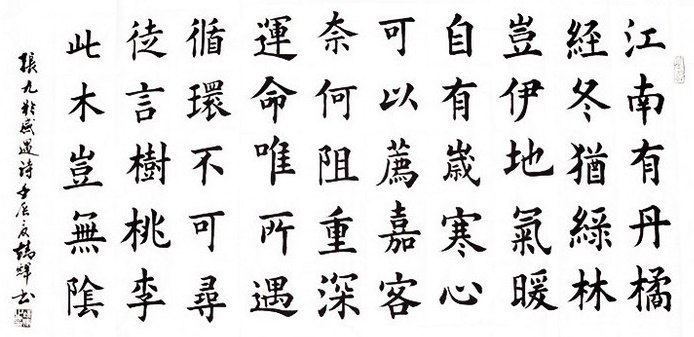 江南有丹橘
經冬猶綠林
豈伊地氣暖
自有歲寒心
可以薦嘉客
奈何阻重深
運命唯所遇
循環不可尋
徒言樹桃李
此木豈無陰
張九齡感遇詩壬辰夏